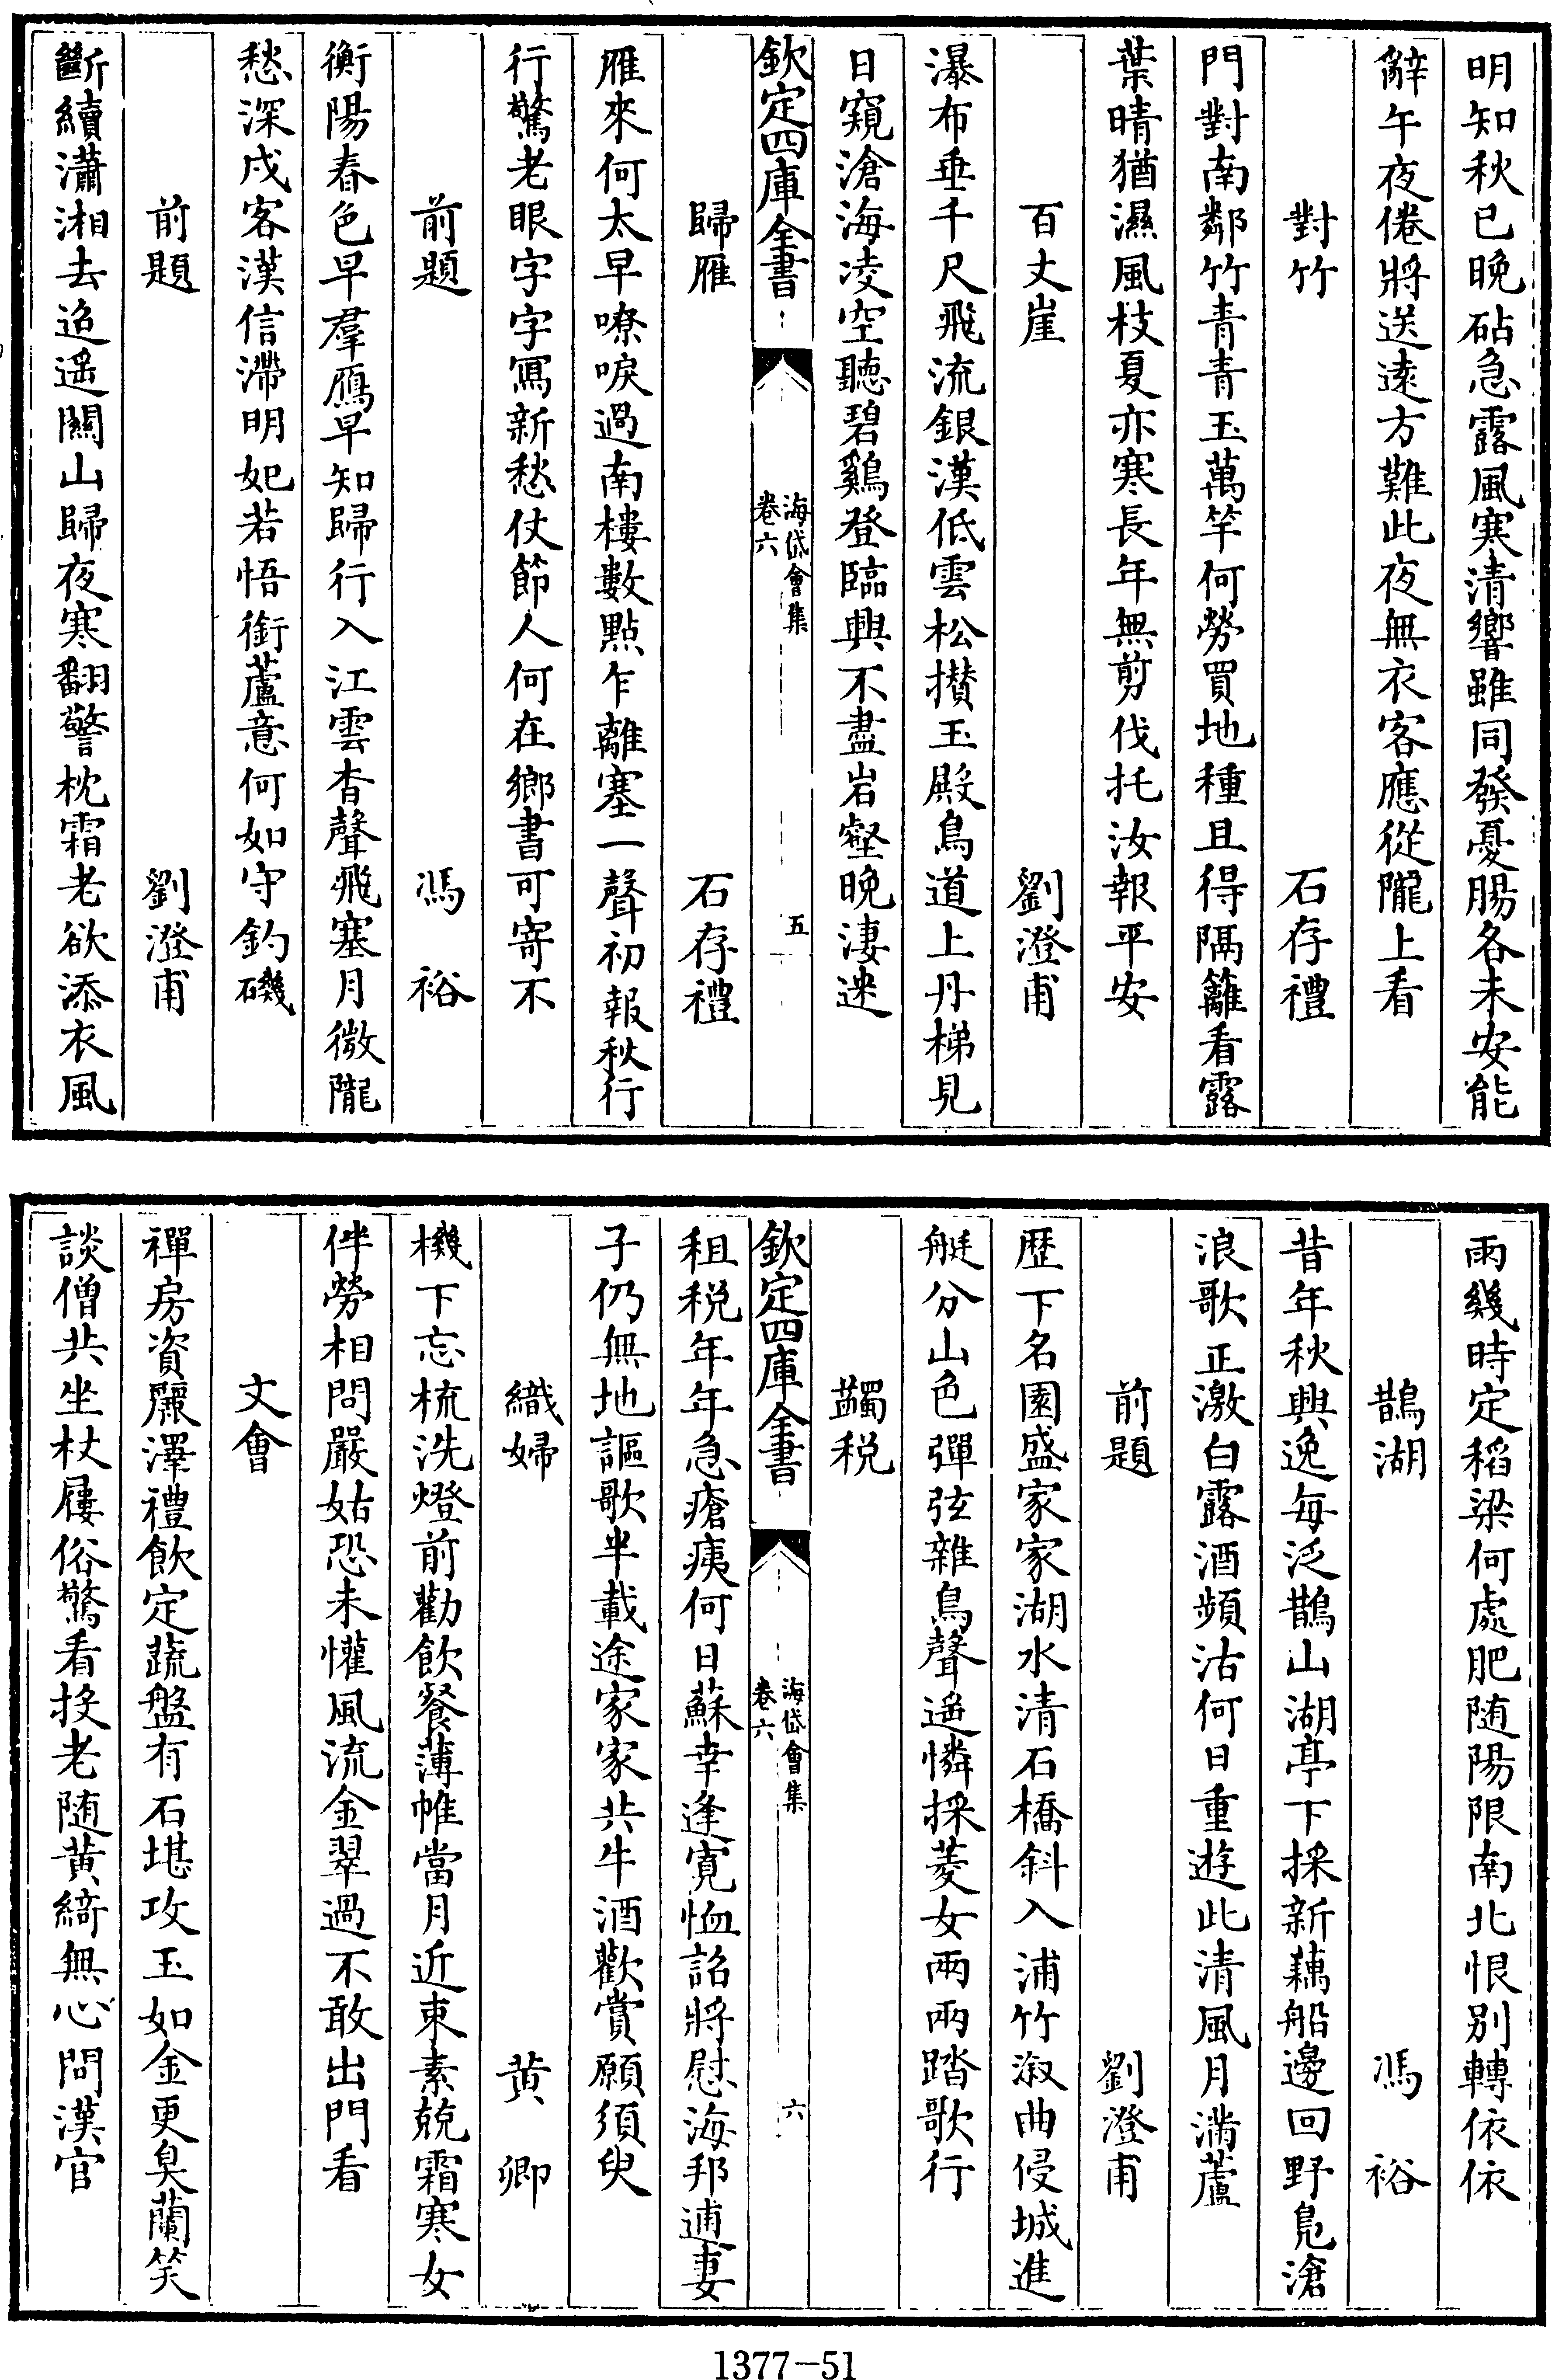 明知秋已晚砧急露風寒清響雖同發憂腸各未安能
辭午夜倦將送遠方難此夜無衣客應從隴上看
對竹　石存禮
門對南鄰竹青青玉萬竿何勞買地種且得隔籬看露
葉晴猶濕風枝夏亦寒長年無剪伐托汝報平安
百丈崖　劉澄甫
瀑布垂千尺飛流銀漢低雲松攅玉殿鳥道上丹梯見
日窺滄海凌空聽碧鷄登臨興不盡岩壑晚淒迷
欽定四庫全書　海岱會集卷六　五
歸雁　石存禮
雁來何太早嘹唳過南樓數點乍離塞一聲初報秋行
行驚老眼字字寫新愁仗節人何在鄉書可寄不
前題　馮裕
衡陽春色早羣鴈早知歸行入江雲杳聲飛塞月微隴
愁深戍客漢信滯明妃若悟銜蘆意何如守釣磯
前題　劉澄甫
斷續瀟湘去迢遥關山歸夜寒翻警枕霜老欲添衣風
雨幾時定稻梁何處肥随陽限南北恨别轉依依
鵲湖　馮裕
昔年秋興逸每泛鵲山湖亭下採新藕船邊回野鳬滄
浪歌正激白露酒頻沽何日重遊此清風月滿蘆
前題　劉澄甫
歴下名園盛家家湖水清石橋斜入浦竹淑曲侵城進
艇分山色彈弦雜鳥聲遥憐採菱女兩兩踏歌行
蠲税
欽定四庫全書　海岱會集卷六　六
租税年年急瘡痍何日蘇幸逢寛恤詔將慰海邦逋妻
子仍無地謳歌半載途家家共牛酒歡賞願須臾
織婦　黄卿
機下忘梳洗燈前勸飲餐薄帷當月近束素兢霜寒女
伴勞相問嚴姑恐未懽風流金翠過不敢出門看
文會
禪房資麗澤禮飲定蔬盤有石堪攻玉如金更臭蘭笑
談僧共坐杖屨俗驚看投老随黄綺無心問漢官
1377-51